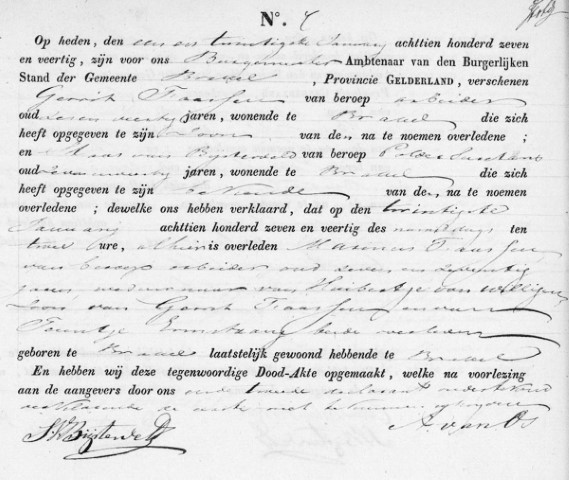 N°. 4
Op heden, den een en twintigste January achttien honderd zeven
en veertig, zijn voor ons Burgemeester Ambtenaar van den Burgerlijken
Stand der Gemeente Brakel, Provincie GELDERLAND, verschenen
Gerrit Taassen van beroep arbeider
oud zes en veertig jaren, wonende te Brakel die zich
heeft opgegeven te zijn Zoon van den na te noemen overledene;
en van Bijsterveld van beroep Polder
oud jaren, wonende te Brakel die zich
heeft opgegeven te zijn bekende van den na te noemen
overledene; dewelke ons hebben verklaard, dat op den twintigste
January achttien honderd zeven en veertig des namiddags ten
twee ure, alhier is overleden Marinus Taassen
van beroep arbeider oud zeven en zeventig
jaren, weduwnaar van Huibertje van Willigen
Zoon van Gerrit Taassen en van
Teuntje beide overleden
geboren te Brakel laatstelijk gewoond hebbende te Brakel
En hebben wij deze tegenwoordige Dood-Akte opgemaakt, welke na voorlezing
aan de aangevers door ons en de tweede declarant
verklarende de eerste niet te kunnen
A. van Os
Bijsterveld